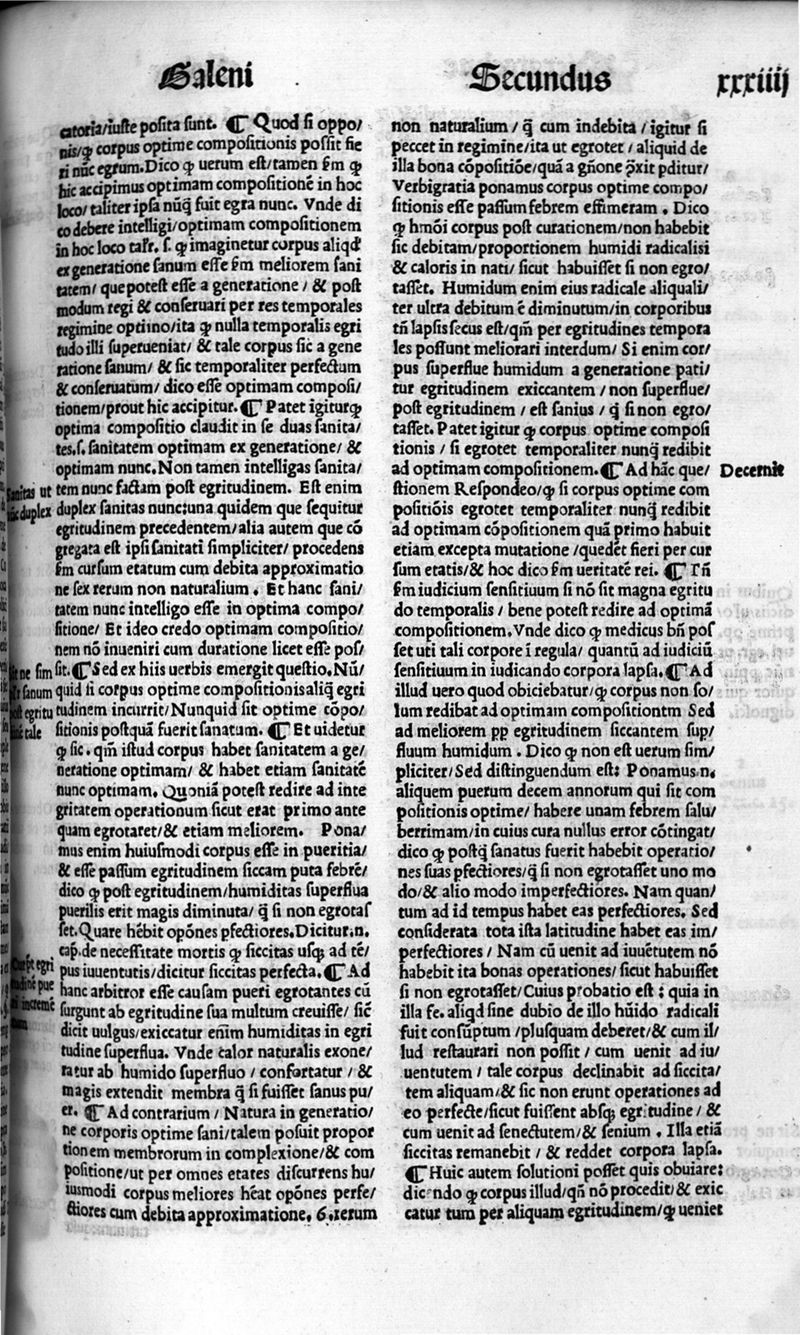 Galeni
Secundus
xxxiiij
catoria/iuste posita sunt. ¶ Quod si oppo/
nis/ꝙ corpus optime compositionis possit fie
ri nũc egrum. Dico ꝙ uerum est/tamen ẜm ꝙ
hic accipimus optimam compositionẽ in hoc
loco/taliter ipsa nũq̃ fuit egra nunc. Vnde di
co debere intelligi/optimam compositionem
in hoc loco talr̃. s. ꝙ imaginetur corpus aliqđ
ex generatione sanum esse ẜm meliorem sani
tatem/ que potest esse a generatione/ & post
modum regi & conseruari per res temporales
regimine optimo/ita ꝙ nulla temporalis egri
tudo illi superueniat/ & tale corpus sic a gene
ratione sanum/ & sic temporaliter perfectum
& conseruatum/ dico esse optimam composi/
tionem/prout hic accipitur. ¶ Patet igiturꝙ
optima compositio claudit in se duas sanita/
tes. s. sanitatem optimam ex generatione/ &
optimam nunc. Non tamen intelligas sanita/
tem nunc factam post egritudinem. Est enim
duplex sanitas nunc:una quidem que sequitur
egritudinem precedentem/alia autem que cõ
gregata est ipsi sanitati simpliciter/ procedens
ẜm cursum etatum cum debita approximatio
ne sex rerum non naturalium. Et hanc sani/
tatem nunc intelligo esse in optima compo/
sitione/ Et ideo credo optimam compositio/
nem nõ inueniri cum duratione licet esse pos/
sit. ¶ Sed ex hiis uerbis emergit questio. Nũ/
quid si corpus optime compositionis aliq̃ egri
tudinem incurrit/ Nunquid sit optime cõpo/
sitionis postquã fuerit sanatum. ¶ Et uidetur
ꝙ sic. qm̃ istud corpus habet sanitatem a ge/
neratione optimam/ & habet etiam sanitatẽ
nunc optimam. Quoniã potest redire ad inte
gritatem operationum sicut erat primo ante
quam egrotaret/& etiam meliorem. Pona/
mus enim huiusmodi corpus esse in pueritia/
& esse passum egritudinem siccam puta febrẽ/
dico ꝙ post egritudinem/humiditas superflua
puerilis erit magis diminuta/ q̃ si non egrotas
set. Quare hẽbit opõnes pfectiores. Dicitur.n.
cap̃. de necessitate mortis ꝙ siccitas usq̃ ad tẽ/
pus iuuentutis/dicitur siccitas perfecta. ¶ Ad
hanc arbitror esse causam pueri egrotantes cũ
surgunt ab egritudine sua multum creuisse/ sic̃
dicit uulgus/exiccatur enĩm humiditas in egri
tudine superflua. Vnde calor naturalis exone/
ratur ab humido superfluo / confortatur / &
magis extendit membra q̃ si fuisset sanus pu/
er. ¶ Ad contrarium / Natura in generatio/
ne corporis optime sani/talem posuit propor
tionem membrorum in complexione/& com
positione/ut per omnes etates discurrens hu/
iusmodi corpus meliores hẽat opõnes perfe/
ctiores cum debita approximatione. 6. rerum
non naturalium/ q̃ cum indebita / igitur si
peccet in regimine/ita ut egrotet / aliquid de
illa bona cõpositiõe/quã a gñone p̃xit pditur/
Verbigratia ponamus corpus optime compo/
sitionis esse passum febrem effimeram. Dico
ꝙ hmõi corpus post curationem/non habebit
sic debitam/proportionem humidi radicalisi
& caloris in nati/ sicut habuisset si non egro/
tasset. Humidum enim eius radicale aliquali/
ter ultra debitum ẽ diminutum/in corporibus
tñ lapsis secus est/qm̃ per egritudines tempora
les possunt meliorari interdum/ Si enim cor/
pus superflue humidum a generatione pati/
tur egritudinem exiccantem / non superflue/
post egritudinem / est sanius / q̃ si non egro/
tasset. Patet igitur ꝙ corpus optime composi
tionis / si egrotet temporaliter nunq̃ redibit
ad optimam compositionem. ¶ Ad hãc que/
stionem Respondeo/ꝙ si corpus optime com
positiõis egrotet temporaliter nunq̃ redibit
ad optimam cõpositionem quã primo habuit
etiam excepta mutatione / quedet fieri per cur
sum etatis/& hoc dico ẜm ueritatẽ rei. ¶ Tñ
ẜm iudicium sensitiuum si nõ sit magna egritu
do temporalis / bene potest redire ad optimã
compositionem. Vnde dico ꝙ medicus bñ pos
set uti tali corpore ĩ regula/ quantũ ad iudiciũ
sensitiuum in iudicando corpora lapsa. ¶ Ad
illud uero quod obiciebatur/ꝙ corpus non so/
lum redibat ad optimam compositiontm Sed
ad meliorem pp egritudinem siccantem sup/
fluum humidum. Dico ꝙ non est uerum sim/
pliciter/ Sed distinguendum est: Ponamus.n.
aliquem puerum decem annorum qui sit com
positionis optime/ habere unam febrem salu/
berrimam/in cuius cura nullus error cõtingat/
dico ꝙ postq̃ sanatus fuerit habebit operatio/
nes suas pfectiores/q̃ si non egrotasset uno mo
do/& alio modo imperfectiores. Nam quan/
tum ad id tempus habet eas perfectiores. Sed
considerata tota ista latitudine habet eas im/
perfectiores / Nam cũ uenit ad iuuẽtutem nõ
habebit ita bonas operationes/ sicut habuisset
si non egrotasset/ Cuius probatio est: quia in
illa fe. aliqđ sine dubio de illo hũido radicali
fuit consũptum /plusquam deberet/& cum il/
lud restaurari non possit / cum uenit ad iu/
uentutem / tale corpus declinabit ad siccita/
tem aliquam/& sic non erunt operationes ad
eo perfecte/sicut fuissent absq̃ egritudine / &
cum uenit ad senectutem/& senium. Illa etiã
siccitas remanebit / & reddet corpora lapsa.
¶ Huic autem solutioni posset quis obuiare:
dicendo ꝙ corpus illud/qñ nõ procedit/& exic
catur tum per aliquam egritudinem/ꝙ ueniet
Decernit
sanitas ut
duplex
ne sim
sanum
egritu
tale
egri
pue
increme